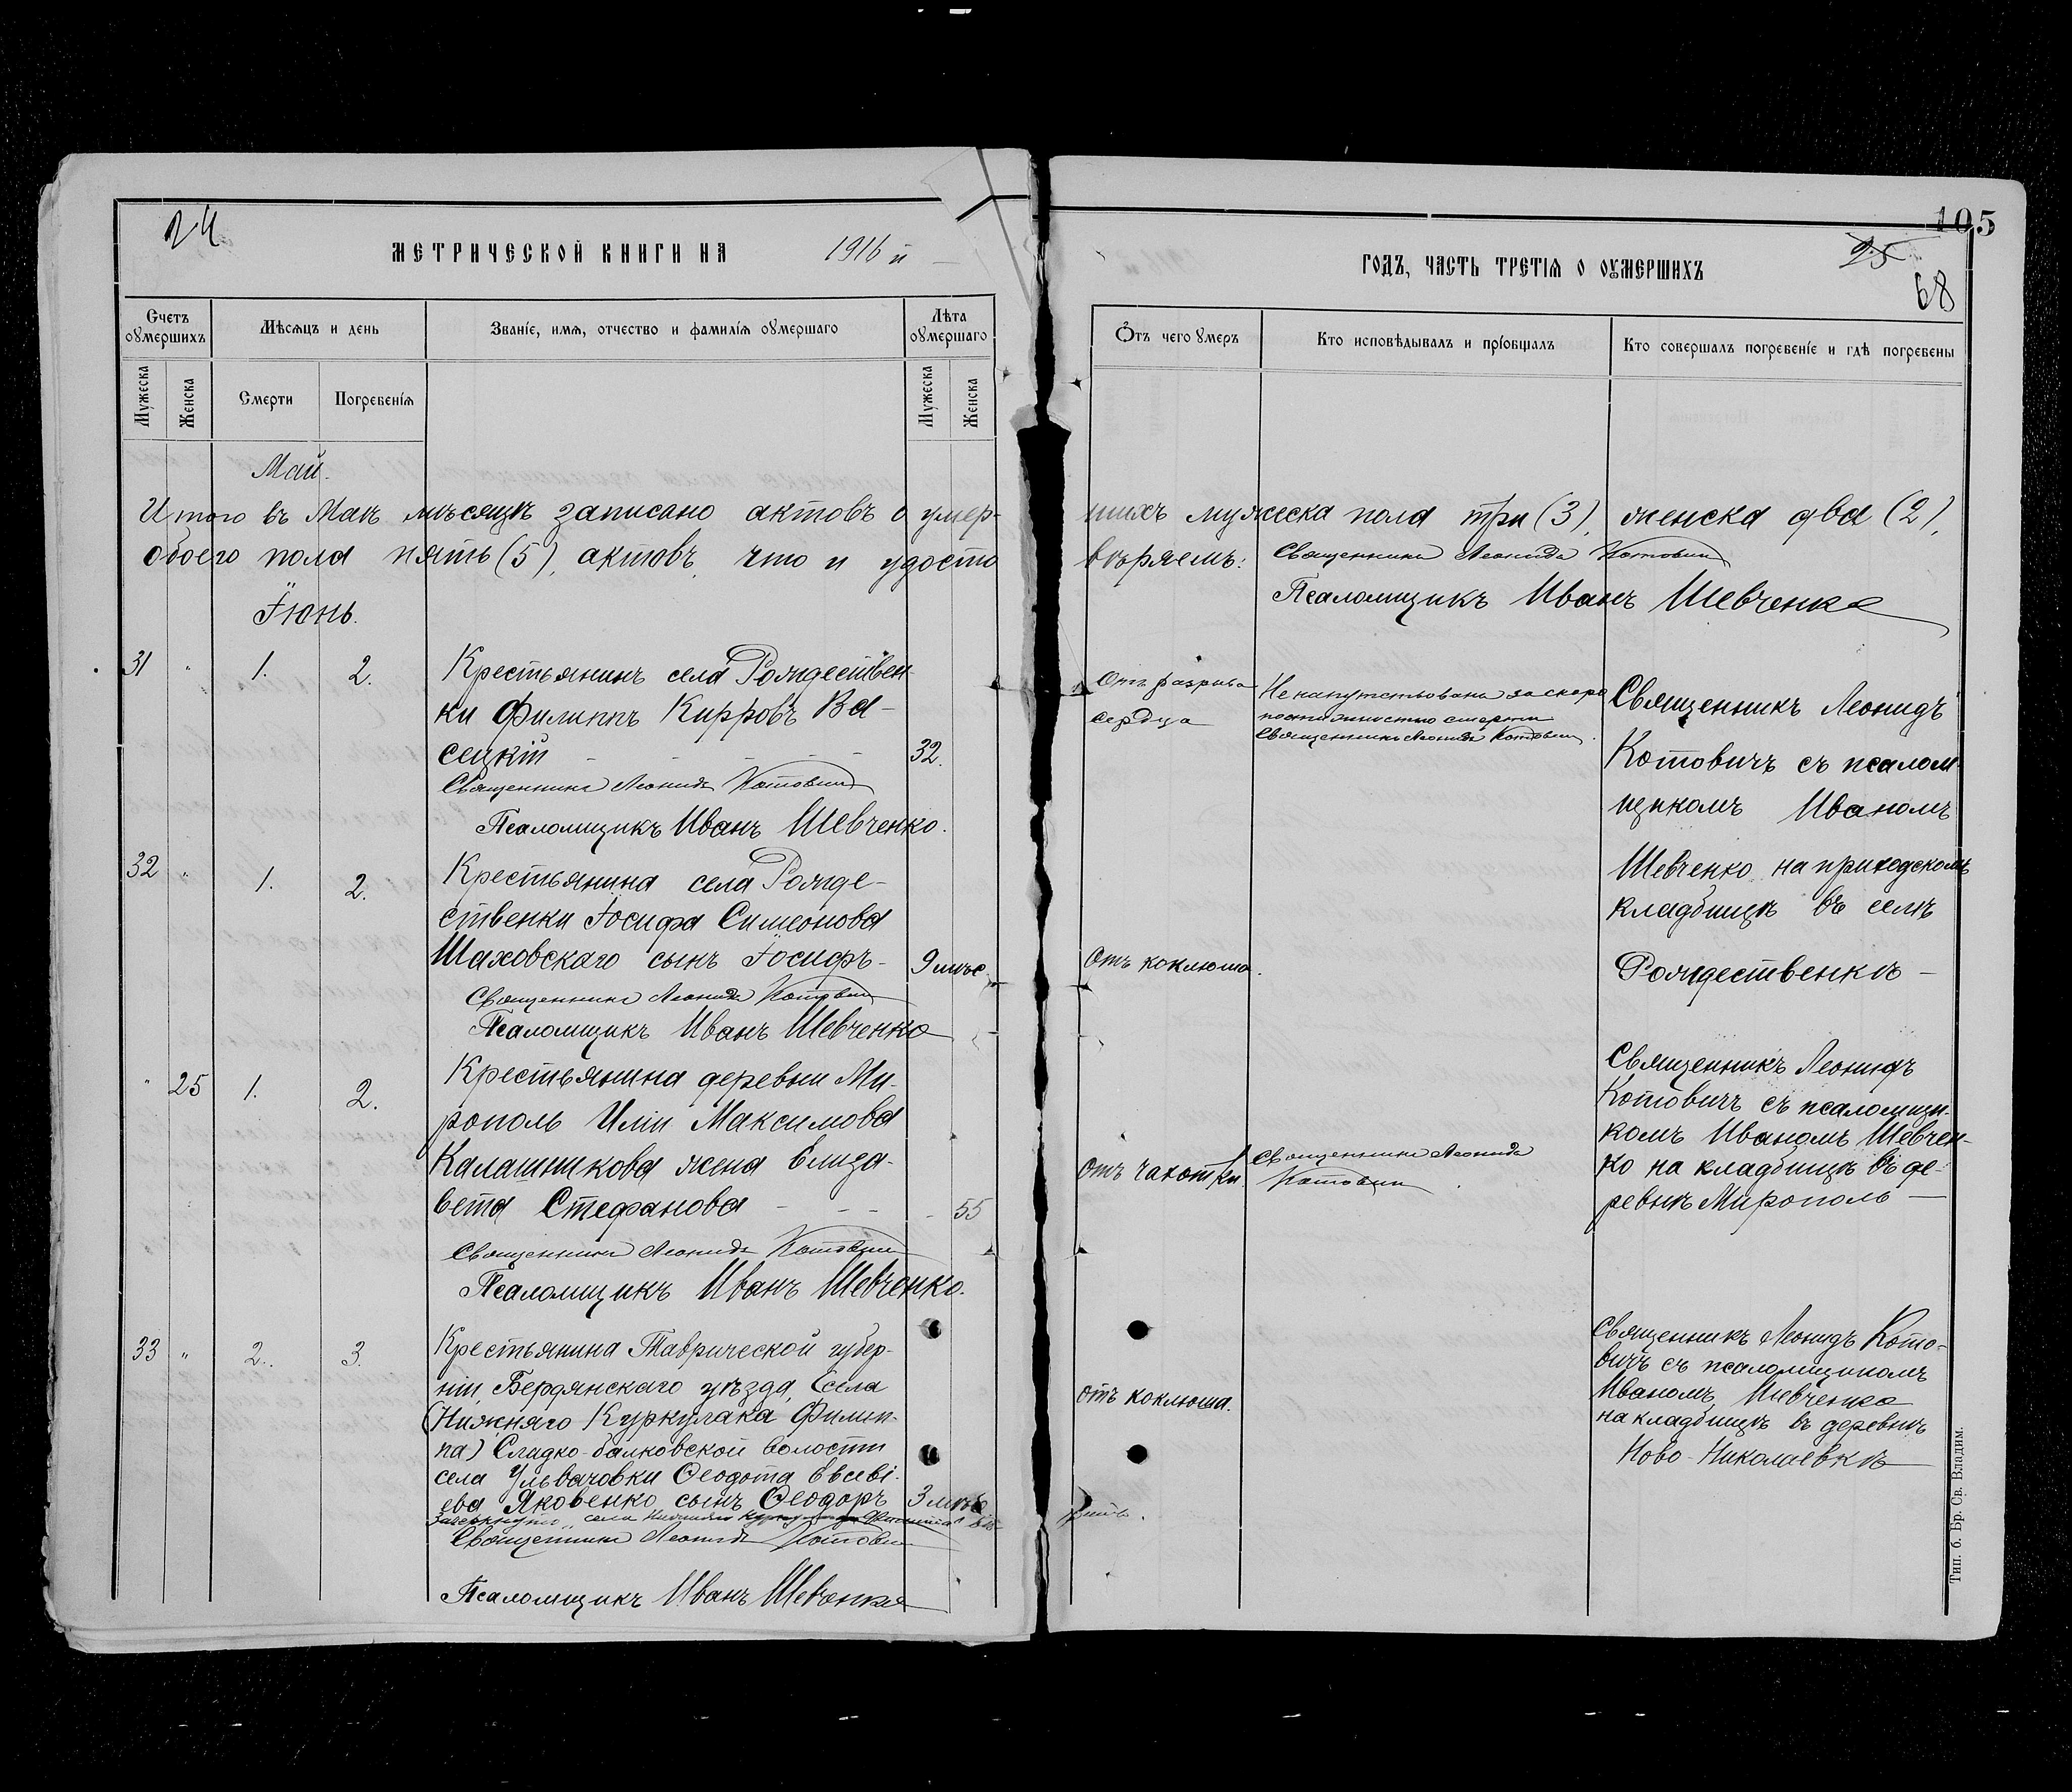 24
МЕТРИЧЕСКОЙ КНИГИ НА 1916 й
Счетъ оумершихъ
Мѣсяцъ и день
Званіе, имя, отчество и фамилія оумершаго
Лѣта оумершаго
Мужеска
Женска
Смерти
Погребенія
Мужеска
Женска
105
25
68
ГОДЪ, ЧАСТЬ ТРЕТІЯ О ОУМЕРШИХЪ
Отъ чего умеръ
Кто исповѣдывалъ и пріобщалъ
Кто совершалъ погребеніе и гдѣ погребены
Май.
Итого въ Маѣ мѣсяцѣ записано актовъ о умер-
шихъ мужеска пола три (3), женска два (2),
обоего пола пять (5), актовъ, что и удосто
вѣряемъ: Священникъ Леонидъ Котовичъ
Псаломщикъ Иванъ Шевченко
Іюнь.
31 " 1. 2.
Крестьянинъ села Рождествен-
ки Филиппъ Кирровъ Ва-
сецкій 32.
Священникъ Леонидъ Котовичъ
Псаломщикъ Иванъ Шевченко.
Отъ разрыва
сердца
Не напутствованъ за скоро
постижностью смерти
Священникъ Леонидъ Котовичъ.
Священникъ Леонидъ
Котовичъ съ псалом
щикомъ Иваномъ
Шевченко на приходскомъ
кладбищѣ въ селѣ
Рождественкѣ —
32 " 1. 2.
Крестьянина села Рожде-
ственки Іосифа Симеонова
Шаховскаго сынъ Іосифъ- 9 мѣс.
Священникъ Леонидъ Котовичъ
Псаломщикъ Иванъ Шевченко
Отъ коклюша.
" 25 1. 2.
Крестьянина деревни Ми-
рополь Иліи Максимова
Калашникова жена Елиза-
вета Стефанова - - - 55
Священникъ Леонидъ Котовичъ
Псаломщикъ Иванъ Шевченко.
Отъ чахотки.
Священникъ Леонидъ
Котовичъ
Священникъ Леонидъ
Котовичъ съ псаломщи-
комъ Иваномъ Шевчен-
ко на кладбищѣ въ де-
ревнѣ Мирополь —
33 " 2. 3.
Крестьянина Таврической губер-
ніи, Бердянскаго уѣзда, (села
(Нижняго Куркулака Филип-
па) Сладко-балковской волости
села Ульяновки Ѳеодота Евсеві-
ева Яковенко сынъ Ѳеодоръ 3 мѣс
Зачеркнуто села Нижняго
Священникъ Леонидъ Котовичъ
Псаломщикъ Иванъ Шевченко
отъ коклюша.
Священникъ Леонидъ Кото-
вичъ съ псаломщикомъ
Иваномъ Шевченко
на кладбищѣ въ деревнѣ
Ново-Николаевкѣ
Тип. б. Бр. Св. Владим.